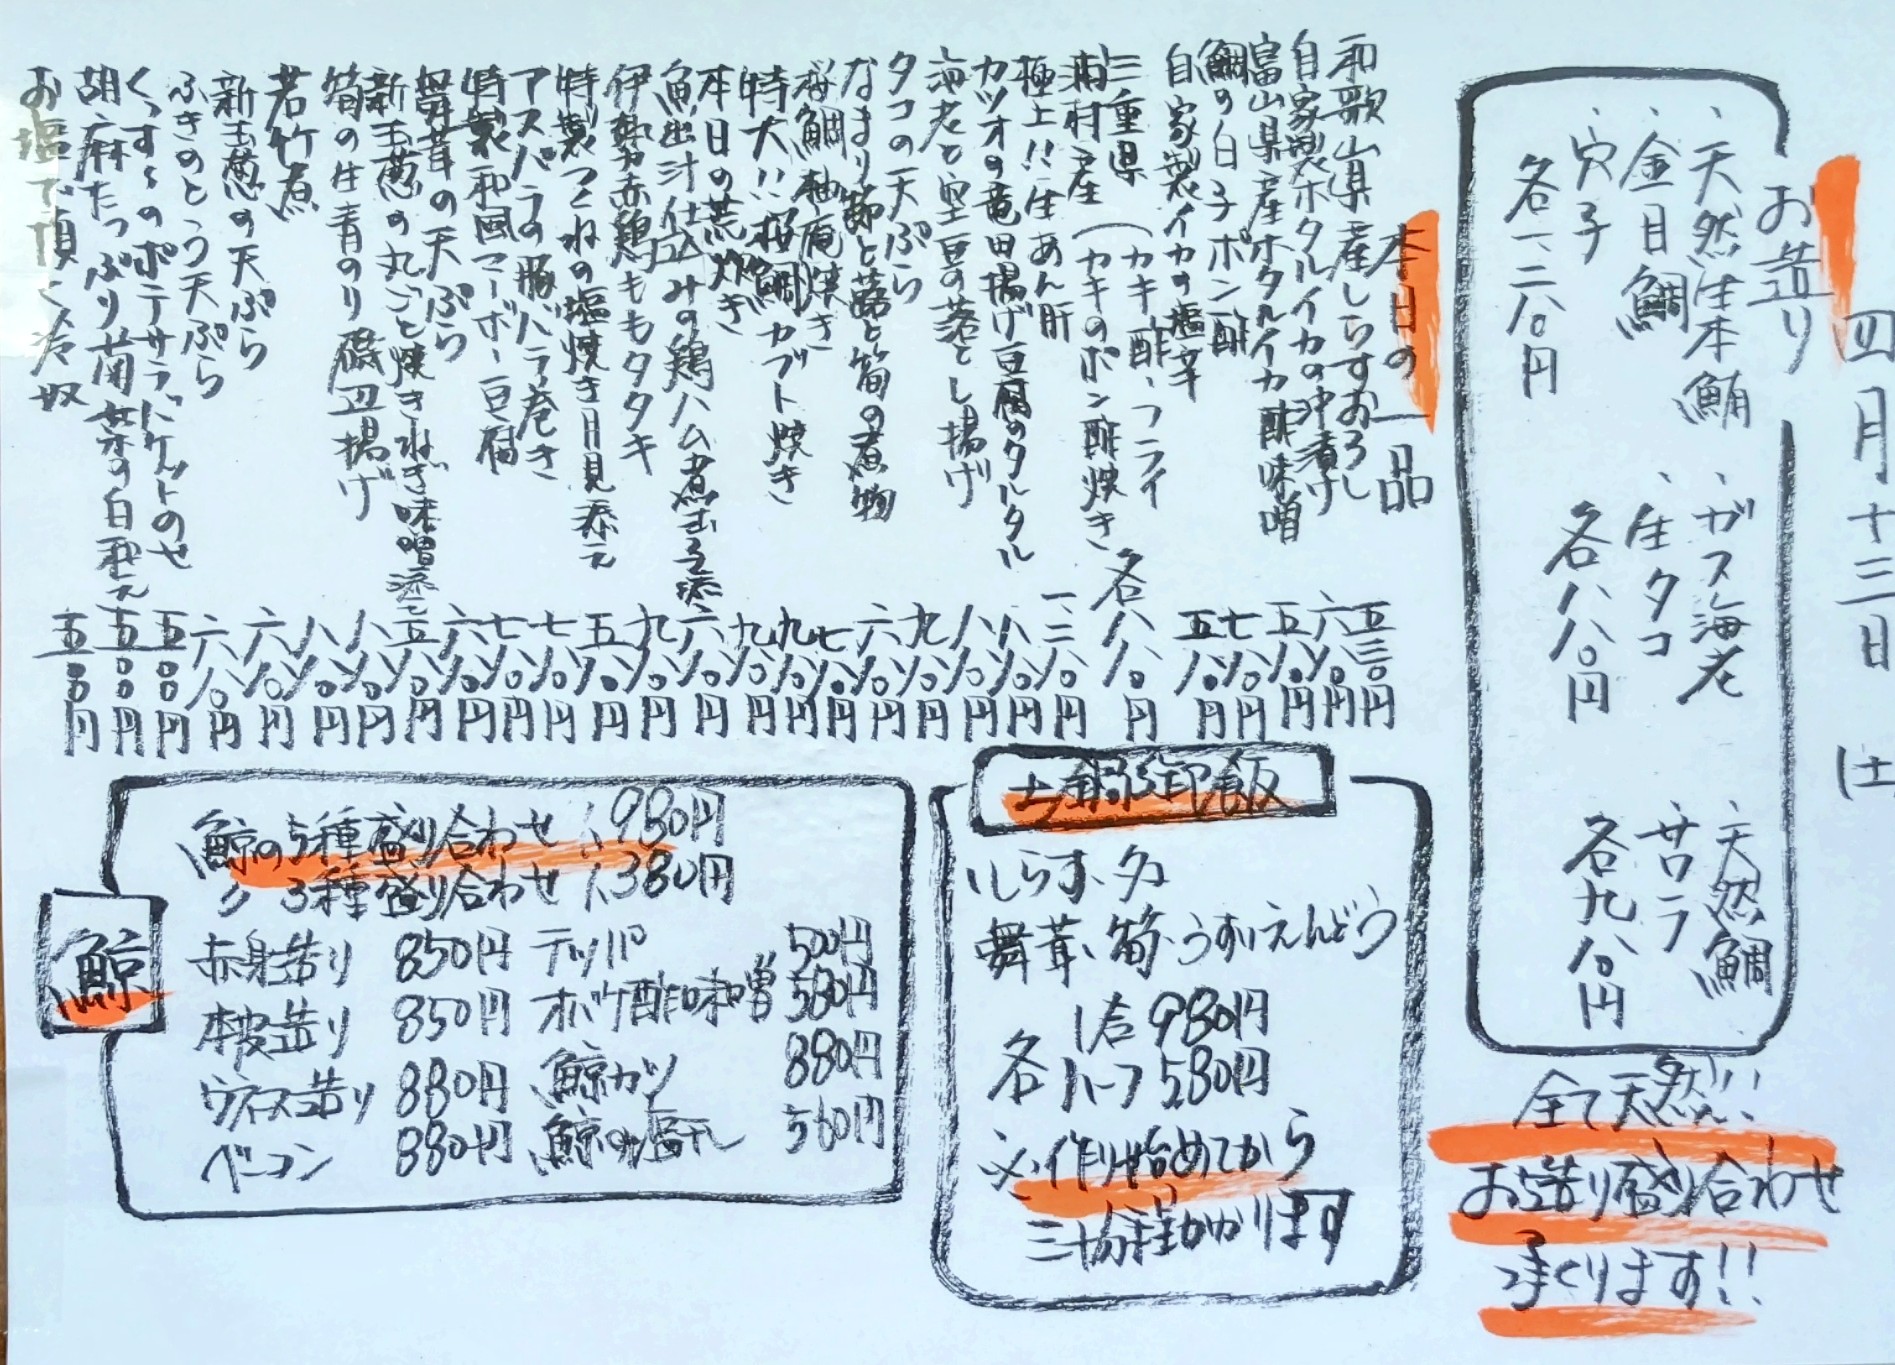 四月十三日(土
お造り
・天然生本鮪
・金目鯛
・穴子
各一、二八〇円
・ガス海老
・生タコ
各八八〇円
・天然鯛
・サワラ
各九八〇円
全て天然!!
お造り盛り合わせ
承ります!!
本日の一品
和歌山県産しらすおろし 五三〇円
自家製ホタルイカの沖漬け 六八〇円
富山県産ホタルイカ酢味噌 五八〇円
鯛の白子ポン酢 七八〇円
自家製イカの塩辛 五八〇円
三重県 (カキ酢・フライ
浦村産 (カキのポン酢焼き 各八八〇円
極上!!生あん肝 一、二八〇円
カツオの竜田揚げ豆腐のタルタル 八八〇円
海老と空豆の落とし揚げ 八八〇円
タコの天ぷら 九八〇円
なまり節と蕗と筍の煮物 六八〇円
桜鯛柚庵焼き 七八〇円
特大!!桜鯛カブト焼き 九八〇円
本日の荒炊き 九八〇円
魚出汁仕込みの鶏ハム煮玉子添 六八〇円
伊勢赤鶏ももタタキ 九八〇円
特製つくねの塩焼き月見添え 五八〇円
アスパラの豚バラ巻き 七八〇円
特製和風マーボー豆腐 七八〇円
舞茸の天ぷら 六八〇円
新玉葱の丸ごと焼きねぎ味噌添え 五八〇円
筍の生青のり磯辺揚げ 八八〇円
若竹煮 八八〇円
新玉葱の天ぷら 六八〇円
ふきのとう天ぷら 六八〇円
くっす〜のポテサラ バケットのせ 五〇〇円
胡麻たっぷり菊菜の白和え 五〇〇円
お塩で頂く冷奴 五〇〇円
土鍋御飯
・しらす、タコ
舞茸、筍、うすいえんどう
各 1合 980円
ハーフ 580円
※作り始めてから
三十分程かかります
鯨
鯨の5種盛り合わせ 1,980円
〃 3種盛り合わせ 1,380円
赤身造り 850円 テッパ 500円
本皮造り 850円 オバケ酢味噌 580円
ウネス造り 880円 鯨カツ 880円
ベーコン 880円 鯨の塩干し 560円